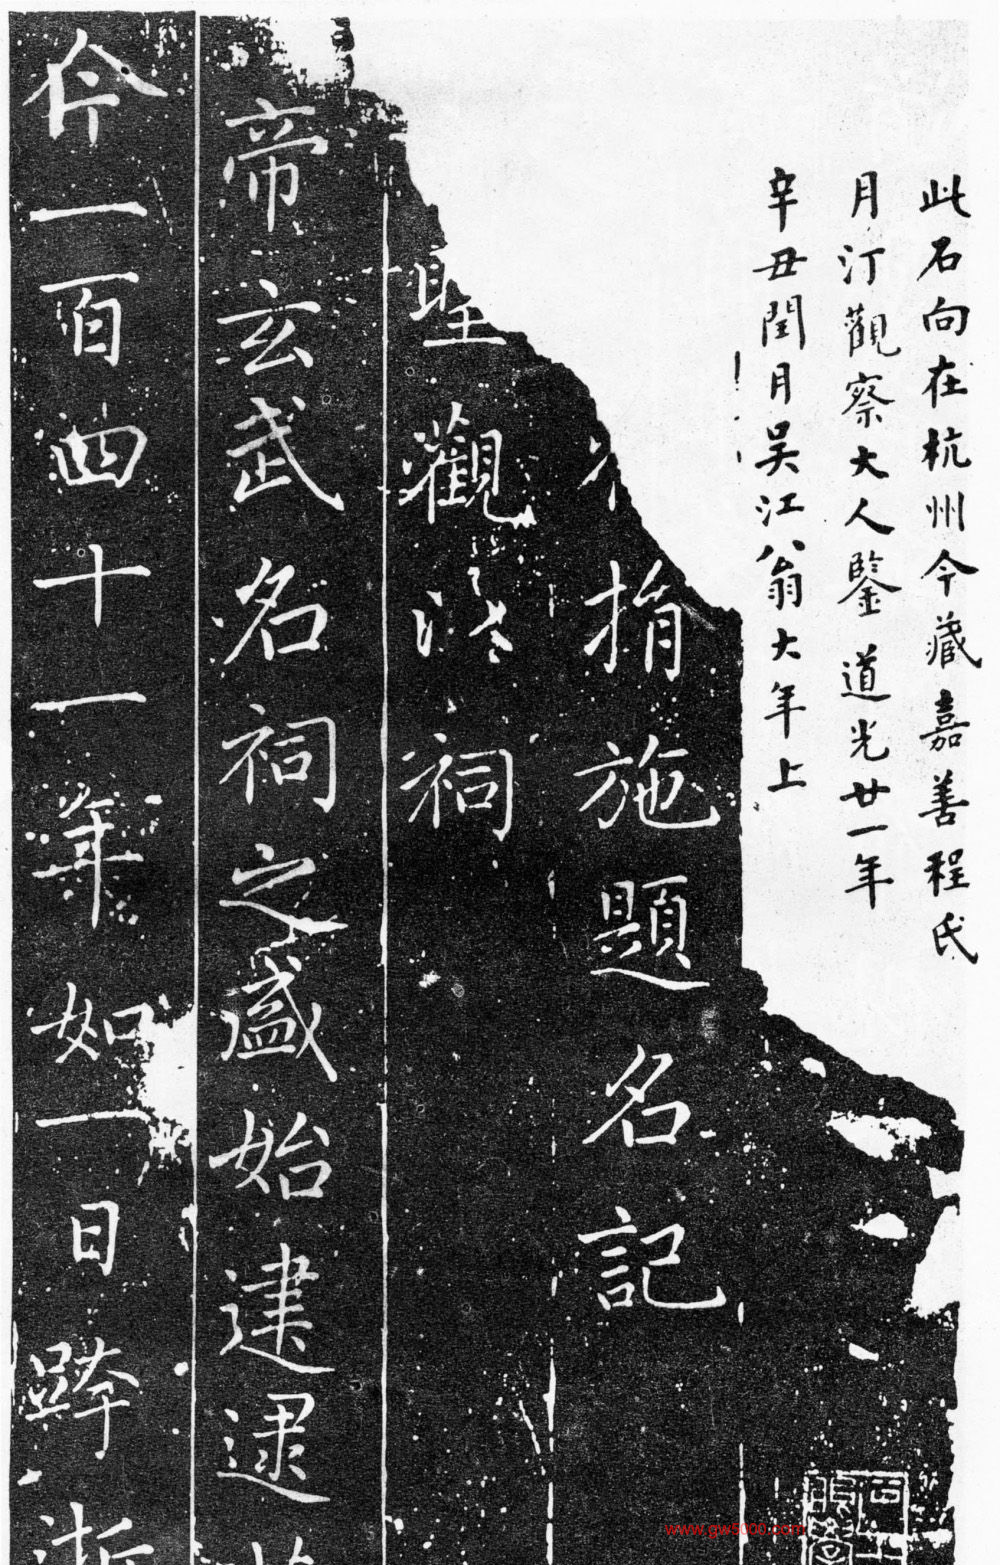 此石向在杭州今藏嘉善程氏
月汀觀察大人鑒道光廿一年
辛丑閏月吴江翁大年上
捐施題名記
聖觀祠
帝玄武名祠之盛始建逮
今一百四十一年如一日跨浙
www.gw5000.com